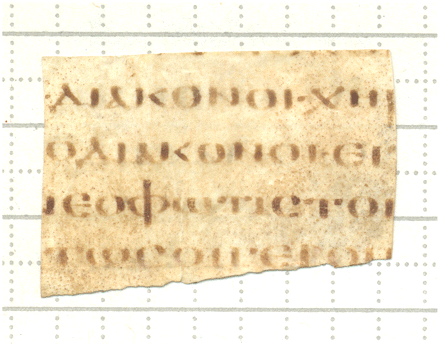 ΔΙΑΚΟΝΟΙ·ΧΗ
ΟΔΙΑΚΟΝΟΙ·ΕΙ
ΝΕΟΦΩΤΙϹΤΟΙ
ΤΩϹΟΙΓΕΡΟ